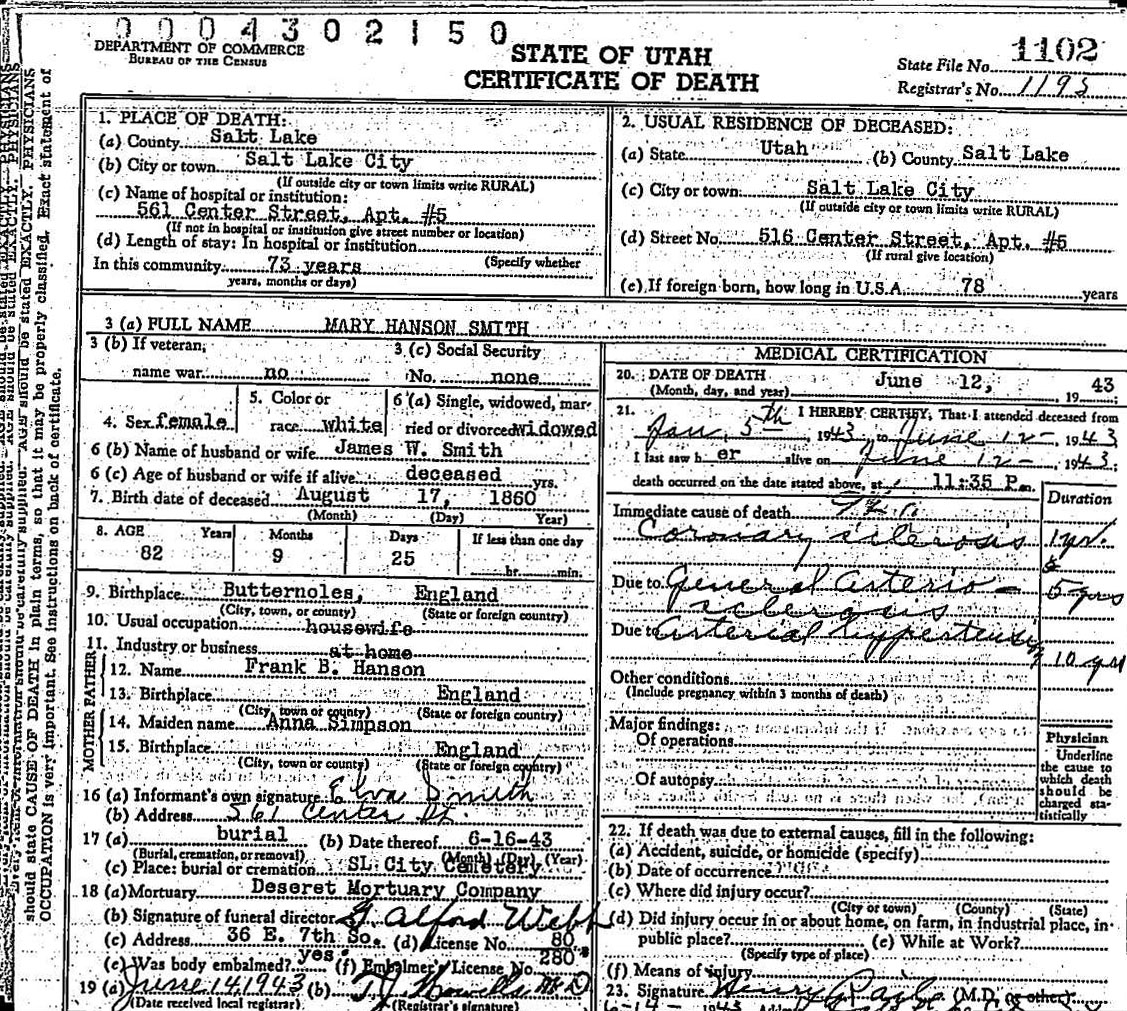 0004302150
DEPARTMENT OF COMMERCE
BUREAU OF THE CENSUS
STATE OF UTAH
CERTIFICATE OF DEATH
State File No. 1102
Registrar's No. 1193
1. PLACE OF DEATH:
(a) County Salt Lake
(b) City or town Salt Lake City
(If outside city or town limits write RURAL)
(c) Name of hospital or institution:
561 Center Street, Apt. #5
(If not in hospital or institution give street number or location)
(d) Length of stay: In hospital or institution
(Specify whether
In this community 73 years
years, months or days)
2. USUAL RESIDENCE OF DECEASED:
(a) State Utah (b) County Salt Lake
(c) City or town Salt Lake City
(If outside city or town limits write RURAL)
(d) Street No. 516 Center Street, Apt. #5
(If rural give location)
(e) If foreign born, how long in U.S.A. 78 years
3 (a) FULL NAME MARY HANSON SMITH
3 (b) If veteran, name war no
3 (c) Social Security No. none
4. Sex female
5. Color or race white
6 (a) Single, widowed, married or divorced widowed
6 (b) Name of husband or wife James W. Smith
6 (c) Age of husband or wife if alive deceased yrs.
7. Birth date of deceased August 17, 1860
(Month) (Day) Year)
8. AGE Years Months Days If less than one day
82 9 25 hr. min.
9. Birthplace Butternoles, England
(City, town, or county) (State or foreign country)
10. Usual occupation housewife
11. Industry or business at home
FATHER
12. Name Frank B. Hanson
13. Birthplace England
(City, town or county) (State or foreign country)
MOTHER
14. Maiden name Anna Simpson
15. Birthplace England
(City, town or county) (State or foreign country)
16 (a) Informant's own signature Elva Smith
(b) Address 561 Center St.
17 (a) burial (b) Date thereof 6-16-43
(Burial, cremation, or removal) (Month) (Day) (Year)
(c) Place: burial or cremation SL City Cemetery
18 (a) Mortuary Deseret Mortuary Company
(b) Signature of funeral director Alford Webb
(c) Address 36 E. 7th So. (d) License No. 80
(e) Was body embalmed? yes. (f) Embalmer's License No. 280
19 (a) June 14 1943 (b) M D
(Date received local registrar) (Registrar's signature)
MEDICAL CERTIFICATION
20. DATE OF DEATH June 12, 19 43
(Month, day, and year)
21. I HEREBY CERTIFY, That I attended deceased from
Jan, 5th, 1943, to June 12-, 1943
I last saw h er alive on June 12-, 1943;
death occurred on the date stated above, at 11:35 P.m.
Duration
Immediate cause of death
Coronary sclerosis 1 yr.
Due to General arterio-
sclerosis 5 yrs
Due to arterial hypertension 10 yrs
Other conditions
(Include pregnancy within 3 months of death)
Major findings:
Of operations
Of autopsy
Physician
Underline
the cause to
which death
should be
charged sta-
tistically
22. If death was due to external causes, fill in the following:
(a) Accident, suicide, or homicide (specify)
(b) Date of occurrence
(c) Where did injury occur?
(City or town) (County) (State)
(d) Did injury occur in or about home, on farm, in industrial place, in
public place? (e) While at Work?
(Specify type of place)
(f) Means of injury
23. Signature Henry (M.D. or other)
6-14- 1943
AGE should be stated EXACTLY. PHYSICIANS
should state CAUSE OF DEATH in plain terms, so that it may be properly classified. Exact statement of
OCCUPATION is very important. See instructions on back of certificate.